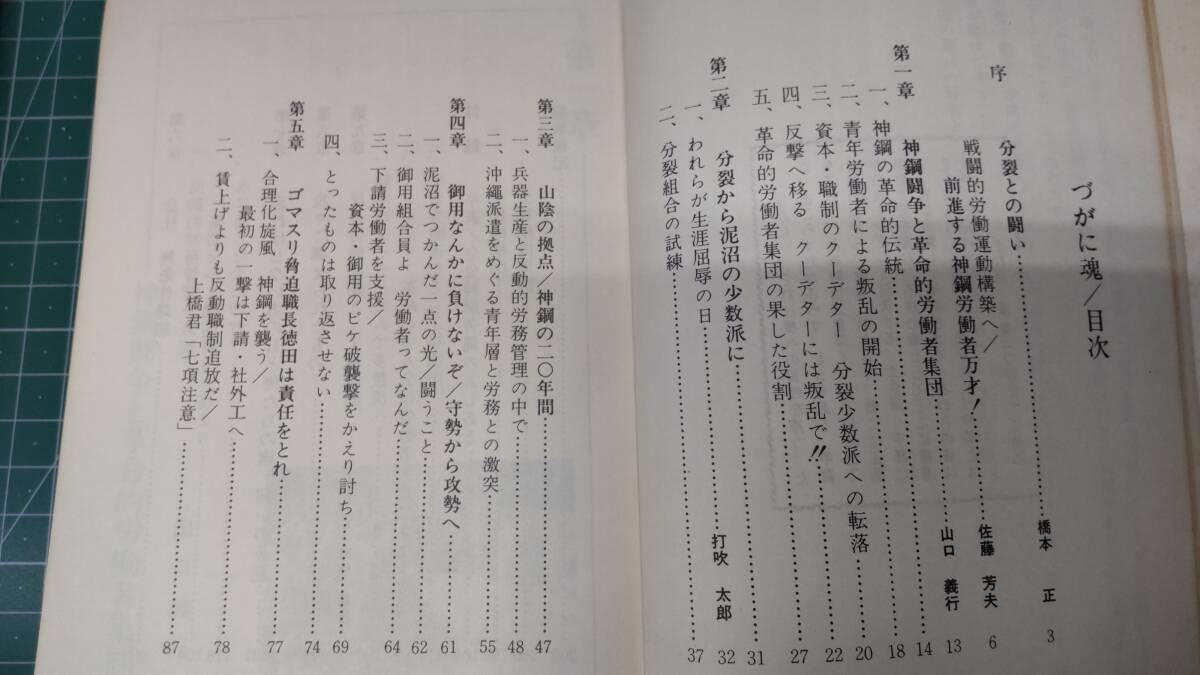 づがに魂/目次
序
分裂との闘い……橋本 正 3
戦闘的労働運動構築へ/
前進する神鋼労働者万才!……佐藤 芳夫 6
第一章 神鋼闘争と革命的労働者集団……山口 義行 13
一、神鋼の革命的伝統……14
二、青年労働者による叛乱の開始……18
三、資本・職制のクーデター 分裂少数派への転落……20
四、反撃へ移る クーデターには叛乱で!!……22
五、革命的労働者集団の果した役割……27
31
第二章 分裂から泥沼の少数派に……打吹 太郎 32
一、われらが生涯屈辱の日……
二、分裂組合の試練……37
第三章 山陰の拠点/神鋼の二〇年間……47
一、兵器生産と反動的労務管理の中で……48
二、沖縄派遣をめぐる青年層と労務との激突……55
第四章 御用なんかに負けないぞ/守勢から攻勢へ……61
一、泥沼でつかんだ一点の光/闘うこと……62
二、御用組合員よ 労働者ってなんだ……64
三、下請労働者を支援/
資本・御用のピケ破襲撃をかえり討ち……69
四、とったものは取り返させない……74
第五章 ゴマスリ脅迫職長徳田は責任をとれ……77
一、合理化旋風 神鋼を襲う/
最初の一撃は下請・社外工へ……78
二、賃上げよりも反動職制追放だ/
上橋君「七項注意」……87